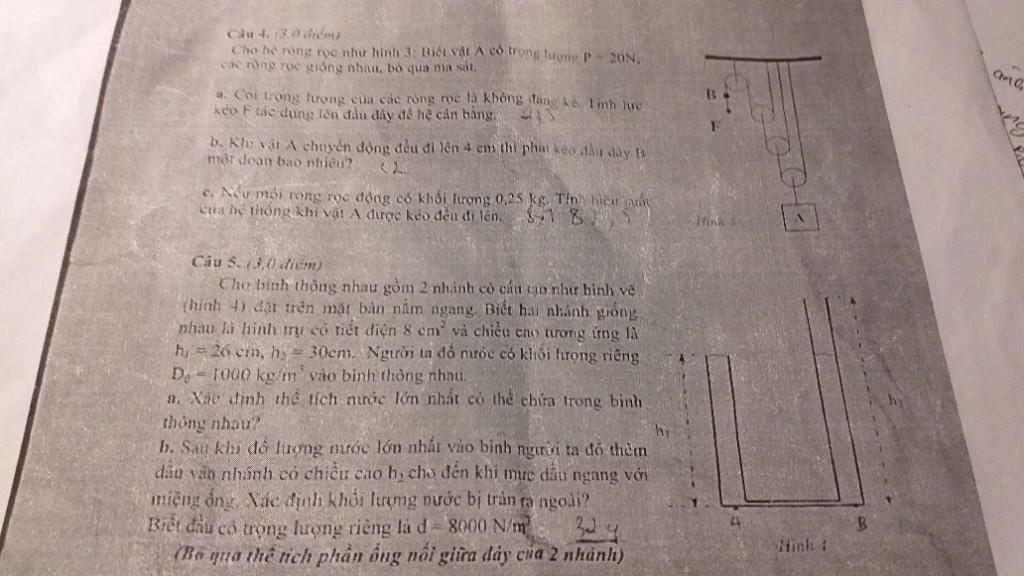 Câu 4. (3,0 điểm)
Cho hệ ròng rọc như hình 3: Biết vật A có trọng lượng P = 20N,
các ròng rọc giống nhau, bỏ qua ma sát.
a. Coi trọng lượng của các ròng rọc là không đáng kể. Tính lực
kéo F tác dụng lên đầu dây để hệ cân bằng.
b. Khi vật A chuyển động đều đi lên 4 cm thì phải kéo đầu dây B
một đoạn bao nhiêu?
c. Nếu mỗi ròng rọc động có khối lượng 0,25 kg. Tính hiệu suất
của hệ thống khi vật A được kéo đều đi lên.
B
F
A
Hình 3
Câu 5. (3,0 điểm)
Cho bình thông nhau gồm 2 nhánh có cấu tạo như hình vẽ
(hình 4) đặt trên mặt bàn nằm ngang. Biết hai nhánh giống
nhau là hình trụ có tiết diện 8 cm² và chiều cao tương ứng là
h₁ = 26 cm, h₂ = 30cm. Người ta đổ nước có khối lượng riêng
D₀ = 1000 kg/m³ vào bình thông nhau.
a. Xác định thể tích nước lớn nhất có thể chứa trong bình
thông nhau?
b. Sau khi đổ lượng nước lớn nhất vào bình người ta đổ thêm
dầu vào nhánh có chiều cao h₂ cho đến khi mực dầu ngang với
miệng ống. Xác định khối lượng nước bị tràn ra ngoài?
Biết dầu có trọng lượng riêng là d = 8000 N/m³
(Bỏ qua thể tích phần ống nối giữa đáy của 2 nhánh)
h₁
h₂
B
Hình 4